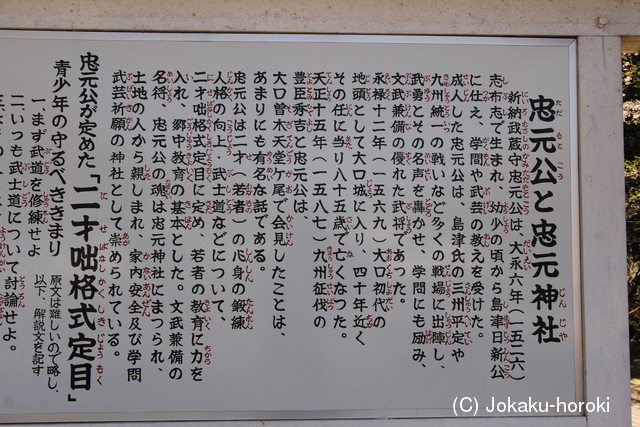 忠元公と忠元神社
新納武蔵守忠元公は、大永六年(一五二六)
志布志で生まれ、幼少の頃から島津日新公
に仕え、学問や武芸の教えを受けた。
成人した忠元公は、島津氏の三州平定や
九州統一の戦いなど多くの戦場に出陣し、
武勇とその名声を轟かせ、学問にも励み、
文武兼備の優れた武将であった。
永禄十二年(一五六九)大口初代の
地頭として大口城に入り、四十年近く
その任に当り八十五歳で亡くなった。
天正十五年(一五八七)九州征伐の
豊臣秀吉と忠元公は、
大口曽木天堂ヶ尾で会見したことは、
あまりにも有名な話である。
忠元公は二才(若者)の心身の鍛練
人格の向上、武士道などについて、
二才咄格式定目に定め、若者の教育に力を
入れ、郷中教育の基本とした。文武兼備の
名将、忠元公の魂は忠元神社にまつられ、
土地の人から親しまれ、家内安全及び学問
武芸祈願の神社として崇められている。
忠元公が定めた「二才咄格式定目」
青少年の守るべききまり
原文は難しいので略し、
以下、解説文を記す
一まず武道を修練せよ
二、いつも武士道について討論せよ。
(C) Jokaku-horoki